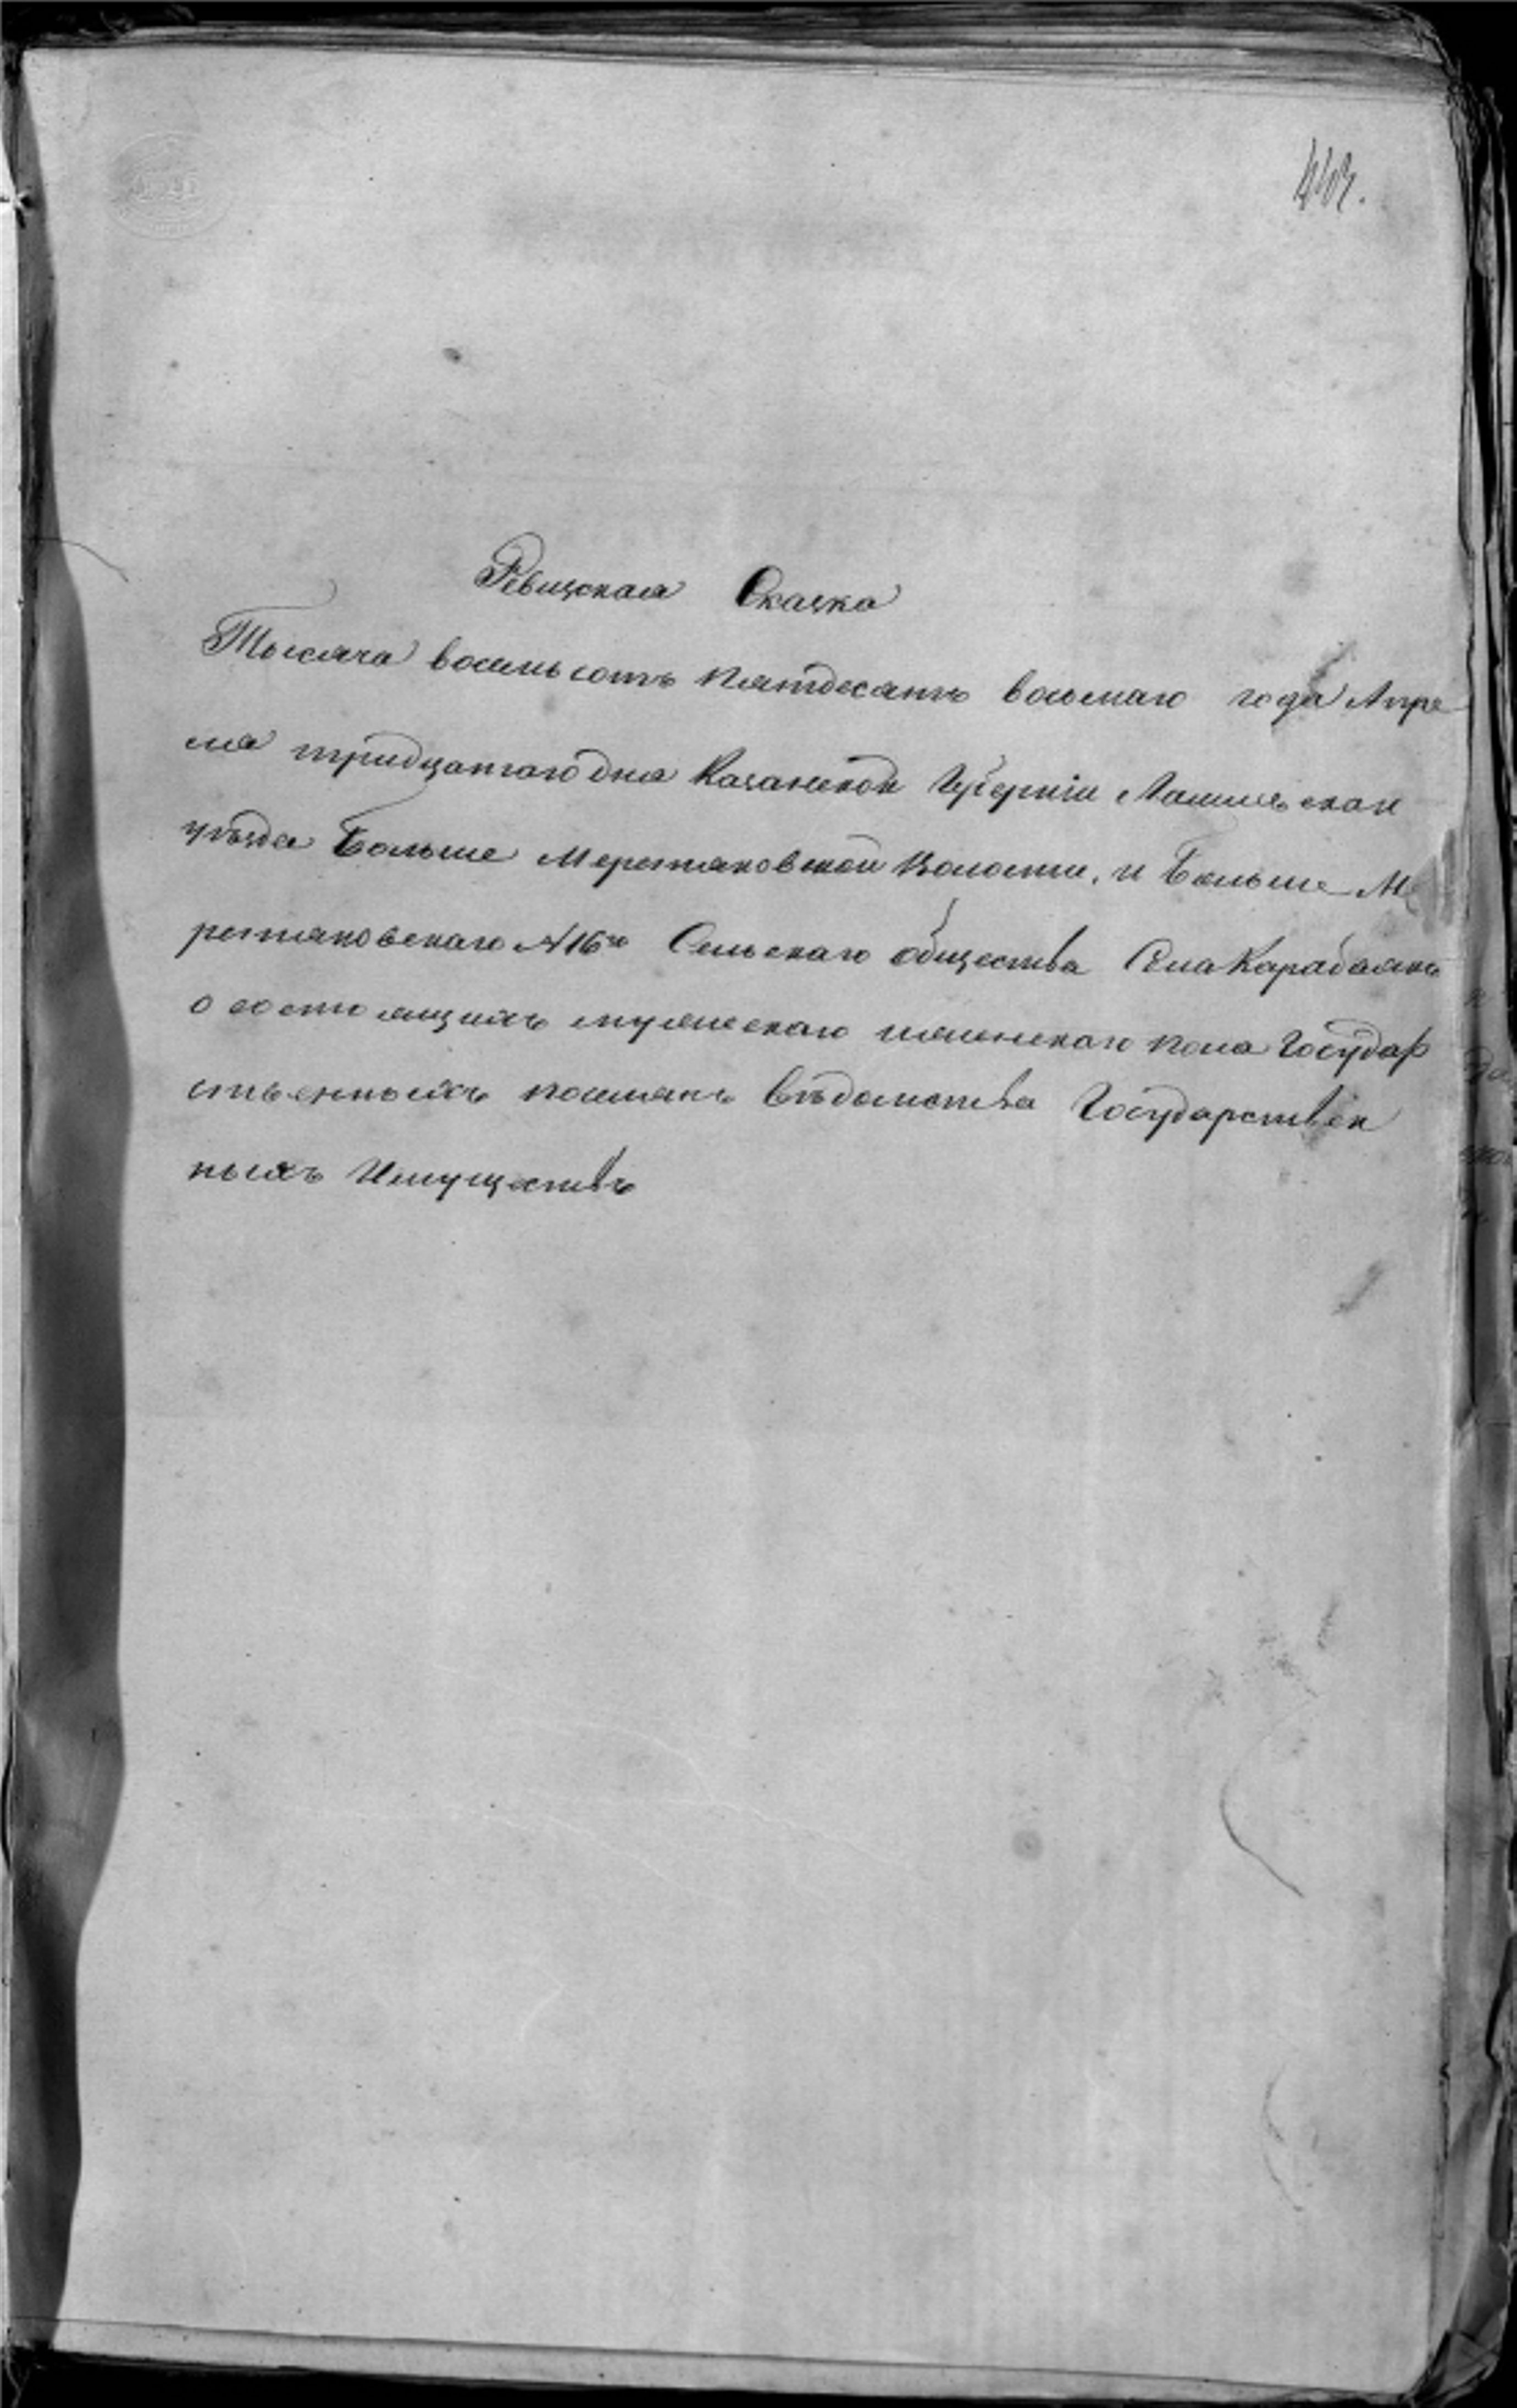 Ревизская Сказка
Тысяча восемьсотъ пятдесятъ восьмаго года Апре
ля тридцатаго дня Казанской Губерніи Лаишевскаго
уѣзда Больше Меретяковской Волости, и Больше Ме
ретяковскаго №16го Сельскаго общества Села Карабаяна
о состоящихъ мужескаго женскаго пола Государ
ственныхъ поселянъ вѣдомства Государствен
ныхъ Имуществъ